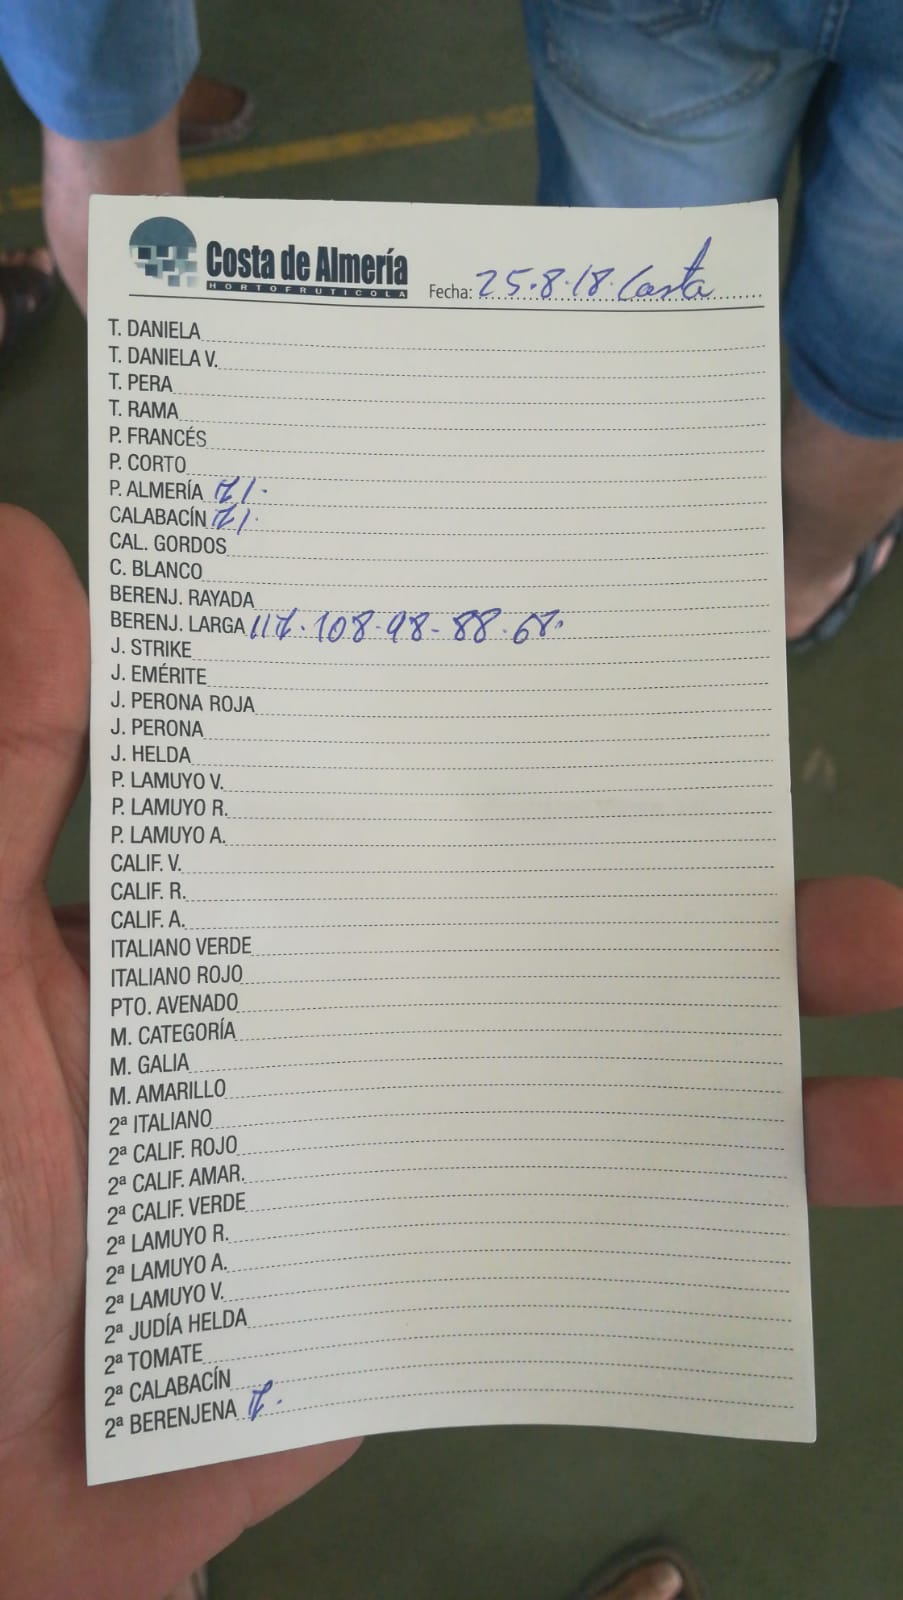 Costa de Almería
HORTOFRUTICOLA
Fecha: 25.8.18. Costa
T. DANIELA
T. DANIELA V.
T. PERA
T. RAMA
P. FRANCÉS
P. CORTO
P. ALMERÍA 71.
CALABACÍN 71.
CAL. GORDOS
C. BLANCO
BERENJ. RAYADA
BERENJ. LARGA 117.108-98-88-68.
J. STRIKE
J. EMÉRITE
J. PERONA ROJA
J. PERONA
J. HELDA
P. LAMUYO V.
P. LAMUYO R.
P. LAMUYO A.
CALIF. V.
CALIF. R.
CALIF. A.
ITALIANO VERDE
ITALIANO ROJO
PTO. AVENADO
M. CATEGORÍA
M. GALIA
M. AMARILLO
2ª ITALIANO
2ª CALIF. ROJO
2ª CALIF. AMAR.
2ª CALIF. VERDE
2ª LAMUYO R.
2ª LAMUYO A.
2ª LAMUYO V.
2ª JUDÍA HELDA
2ª TOMATE
2ª CALABACÍN
2ª BERENJENA 7.